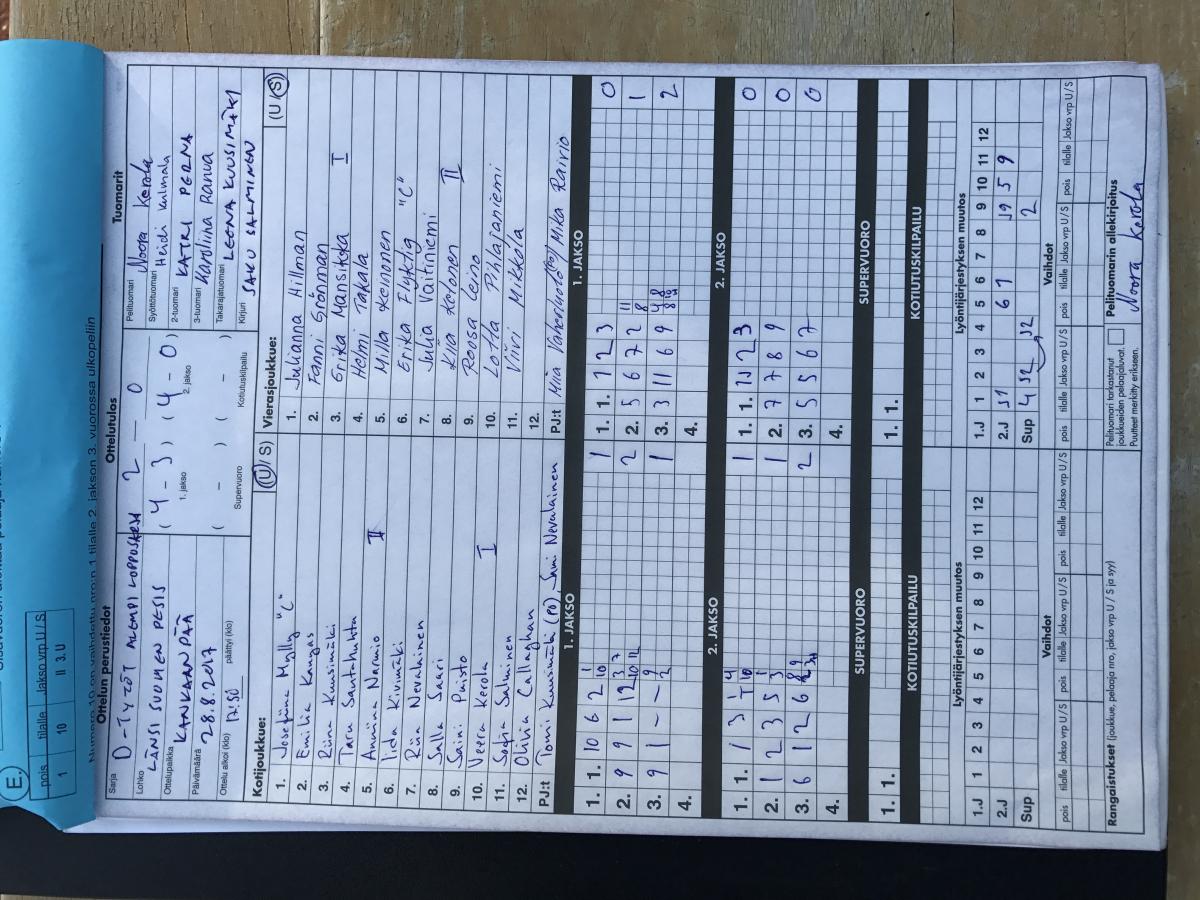 E.
pois tilalle Jakso vrp U / S
1 10 II 3. U
Ottelun perustiedot
Ottelutulos
Tuomarit
Sarja D-TYTÖT ALEMPI LOPPUSARJA
Lohko LÄNSI SUOMEN PESIS
Ottelupaikka KANKAANPÄÄ
Päivämäärä 28.8.2017
Ottelu alkoi (klo) 17:30 päättyi (klo)
2 — 0
( 4 - 3 ) ( 4 - 0 )
1. jakso 2. jakso
( - ) ( - )
Supervuoro Kotiutuskilpailu
Pelituomari Noora Kerola
Syöttötuomari Heidi Kulmala
2-tuomari KATRI PERNA
3-tuomari Karoliina Ranua
Takarajatuomari LEENA KUUSIMÄKI
Kirjuri SAKU SALMINEN
Kotijoukkue: (U / S)
1. Josefiina Mylly "C"
2. Emilia Kangas
3. Riina Kuusimäki
4. Taru Sautahuhta
5. Anniina Narmio II
6. Iida Kivimäki
7. Riia Nevalainen
8. Salla Saari
9. Saini Puisto
10. Veera Kerola I
11. Sofia Salminen
12. Olivia Callaghan
PJ:t Tomi Kuusimäki (PO), Sami Nevalainen
Vierasjoukkue: (U / S)
1. Julianna Hillman
2. Fanni Grönman
3. Erika Mansikka I
4. Helmi Takala
5. Milla Keinonen
6. Erika Flyktig "C"
7. Julia Vaitiniemi
8. Kiia Kolonen II
9. Roosa Leino
10. Lotta Pihlajaniemi
11. Viivi Mikkola
12.
PJ:t Miia Vaheruoto (PO) Mika Rairio
1. JAKSO
1. 1. 10 6 2 1
2. 9 9 1 12 2
3. 9 1 - - 1
4.
1. JAKSO
1. 1. 1 2 3 0
2. 5 6 7 2 1
3. 3 11 6 9 2
4.
2. JAKSO
1. 1. 1 3 1
2. 1 2 3 5 1
3. 6 12 6 2
4.
2. JAKSO
1. 1. 2 3 0
2. 7 7 8 9 0
3. 5 5 6 7 0
4.
SUPERVUORO
1. 1.
SUPERVUORO
1. 1.
KOTIUTUSKILPAILU
KOTIUTUSKILPAILU
Lyöntijärjestyksen muutos
1.J 1 2 3 4 5 6 7 8 9 10 11 12
2.J
Sup
Lyöntijärjestyksen muutos
1.J 1 2 3 4 5 6 7 8 9 10 11 12
2.J J1 6 7 J9 5 9
Sup 4 J2 J2 2
Vaihdot
pois tilalle Jakso vrp U / S pois tilalle Jakso vrp U / S pois tilalle Jakso vrp U / S
Vaihdot
pois tilalle Jakso vrp U / S pois tilalle Jakso vrp U / S pois tilalle Jakso vrp U / S
Rangaistukset (joukkue, pelaaja nro, jakso vrp U / S ja syy)
Pelituomari tarkastanut
joukkueiden pelaajaluvat.
Puutteet merkitty erikseen.
Pelituomarin allekirjoitus
Noora Kerola